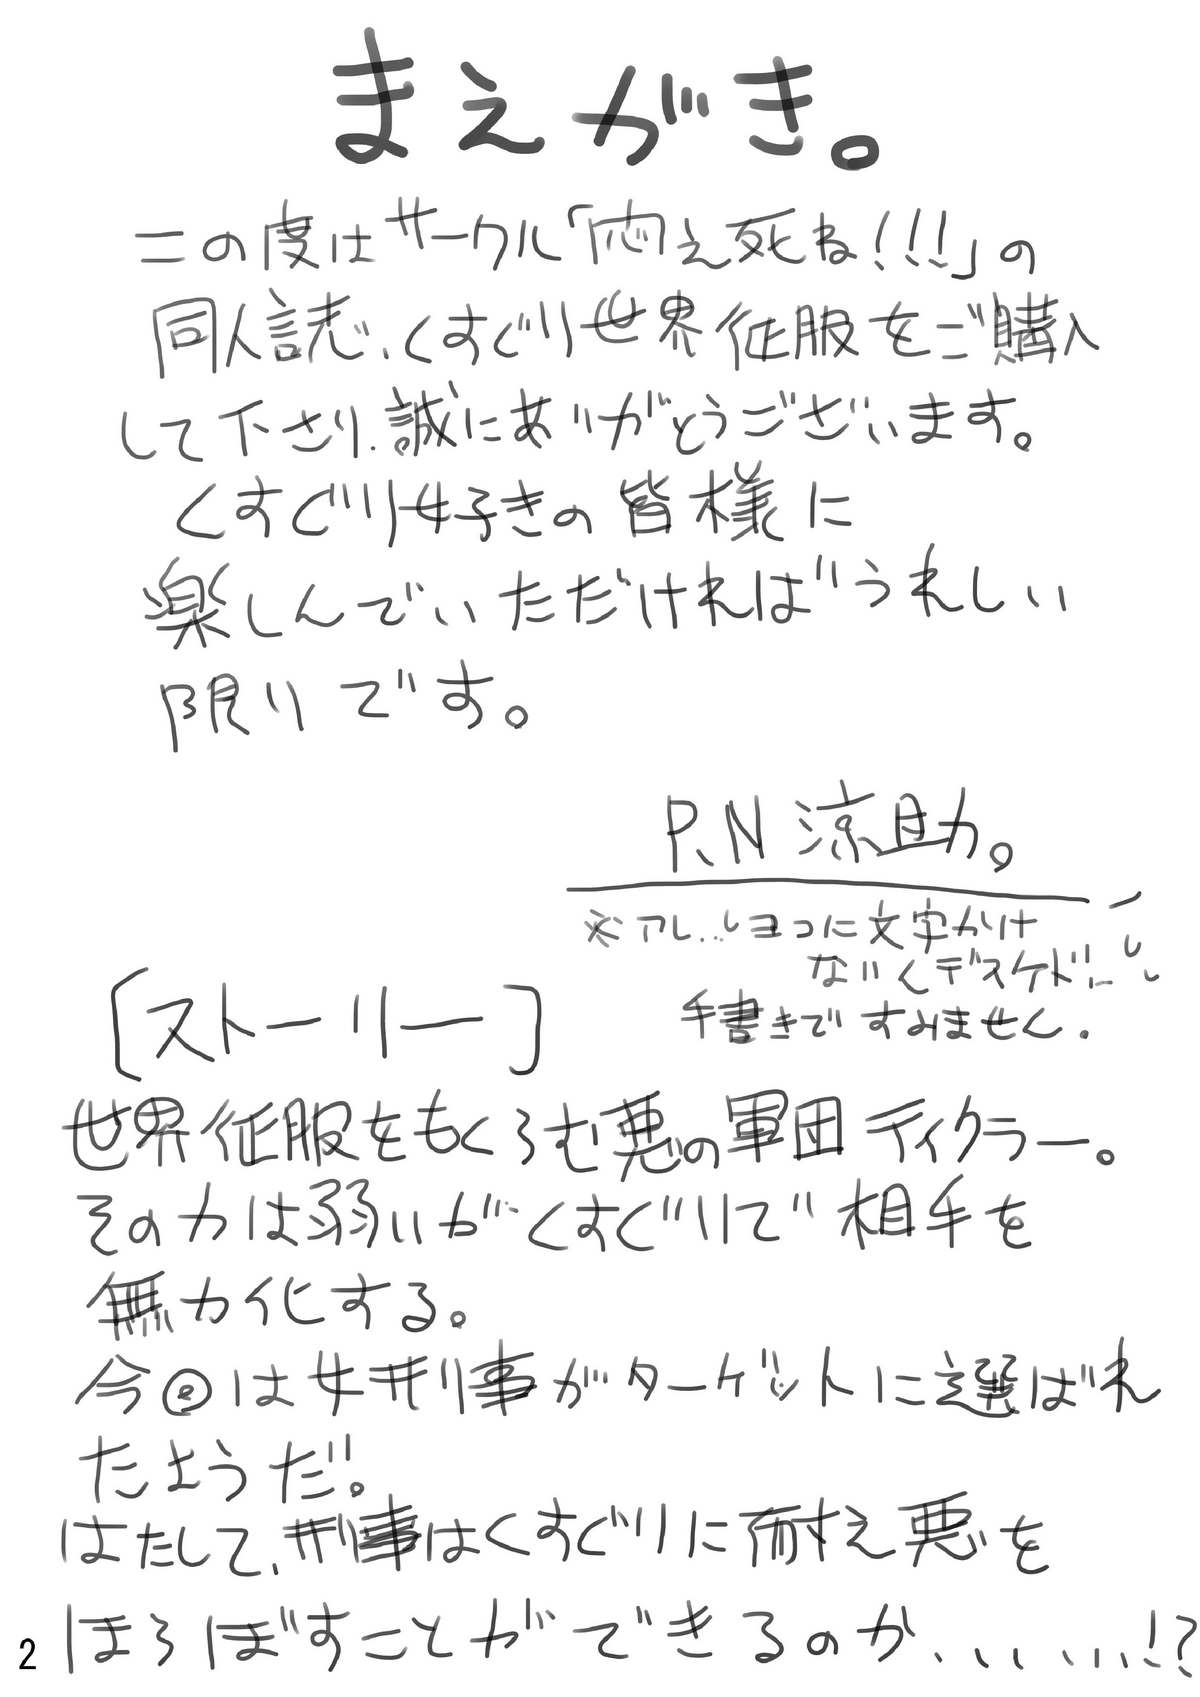 まえがき。
この度はサークル「悶え死ね!!!」の
同人誌、くすぐり世界征服をご購入
して下さり、誠にありがとうございます。
くすぐり好きの皆様に
楽しんでいただければうれしい
限りです。
P.N 涼助。
※アレ…しヨコに文字かけ
ないくデスケド…
手書きですみません.
[ストーリー]
世界征服をもくろむ悪の軍団ティクラー。
その力は弱いがくすぐりで相手を
無力化する。
今回は女刑事がターゲットに選ばれ
たようだ。
はたして、刑事はくすぐりに耐え悪を
ほろぼすことができるのか、、、、、、!?
2